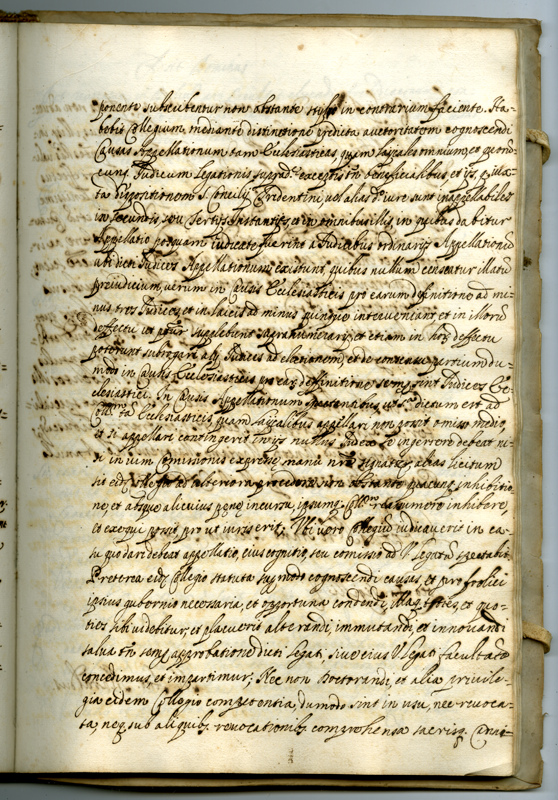 ponente subscribentur non obstante stylo in contrarium faciente. Ha-
bebit Collegium, mediante distinctione predicta auctoritatem cognoscendi
Causas Appellationum tam Ecclesiasticas, quam laycales omnium, et quorum
cunq. Judicum Legationis supradᵉ. exceptis tn̄ beneficialibus, et ijs, q̄ iux-
ta dispositionem S. Concilij Tridentini, vel alias de iure sunt inappellabiles
in secundis, seu tertijs Instantijs, et in omnibus illis, in quibus dabitur
Appellatio, postquam iudicate fuerint a Judicibus ordinarijs Appellationū
ubi dicti Judices Appellationum existunt, quibus nullum censeatur illatū
preiudicium, verum in Causis Ecclesiasticis pro earum definitione ad mi-
nus tres Judices, et in laicis ad minus quinque interveniant, et in illorū
defectu ut pr̄ur supplebunt supranumerarij, et etiam in hor̄ defectu
poterunt subrogari alij Judices ad electionem, et de consensu partium du-
modo in Causis Ecclesiasticis pro ear̄ deffinitione semp̄ sint Judices Ec-
clesiastici. In Causis Appellationum spectantibus, ut sᵃ. dictum est ad
Collᵐ. tā Ecclesiasticis, quam laycalibus appellari non possit omisso medio,
et si appellari contingerit in ijs nullus Judex se ingerere debeat ni-
si in vim Comissionis expresse manu nr̄a signatę, alias licitum
sit eidᵐ Collegio ad ulteriora procedere non obstante quacunq. inhibitio-
ne, et absque alicuius pęnę incursu, ipsumq. Collᵐ reassumere inhibere,
et exequi possit, pro ut iuris erit; Ubi vero Collegium iudicaverit in ca-
su quo dari debeat appellatio, eius cognitio, seu comissio ad V. Legatū spectabit.
Preterea eidᵐ Collegio statuta supr̄ modo cognoscendi causas, et pro felici
ipsius gubernio necessaria, et opportuna condendi, illaq. toties, et quo-
ties sibi videbitur, et placuerit alterandi, immutandi, et innovandi
salva tn̄ semp̄ approbatione dicti Legati, sive eius V. Legati facultatē
concedimus et impartimur; Nec non Doctorandi, et alia privile-
gia eidem Collegio competentia, dumodo sint in usu, nec revoca-
ta, neq. sub aliquib. revocationib. comprehensa sacrisq. Canoi-